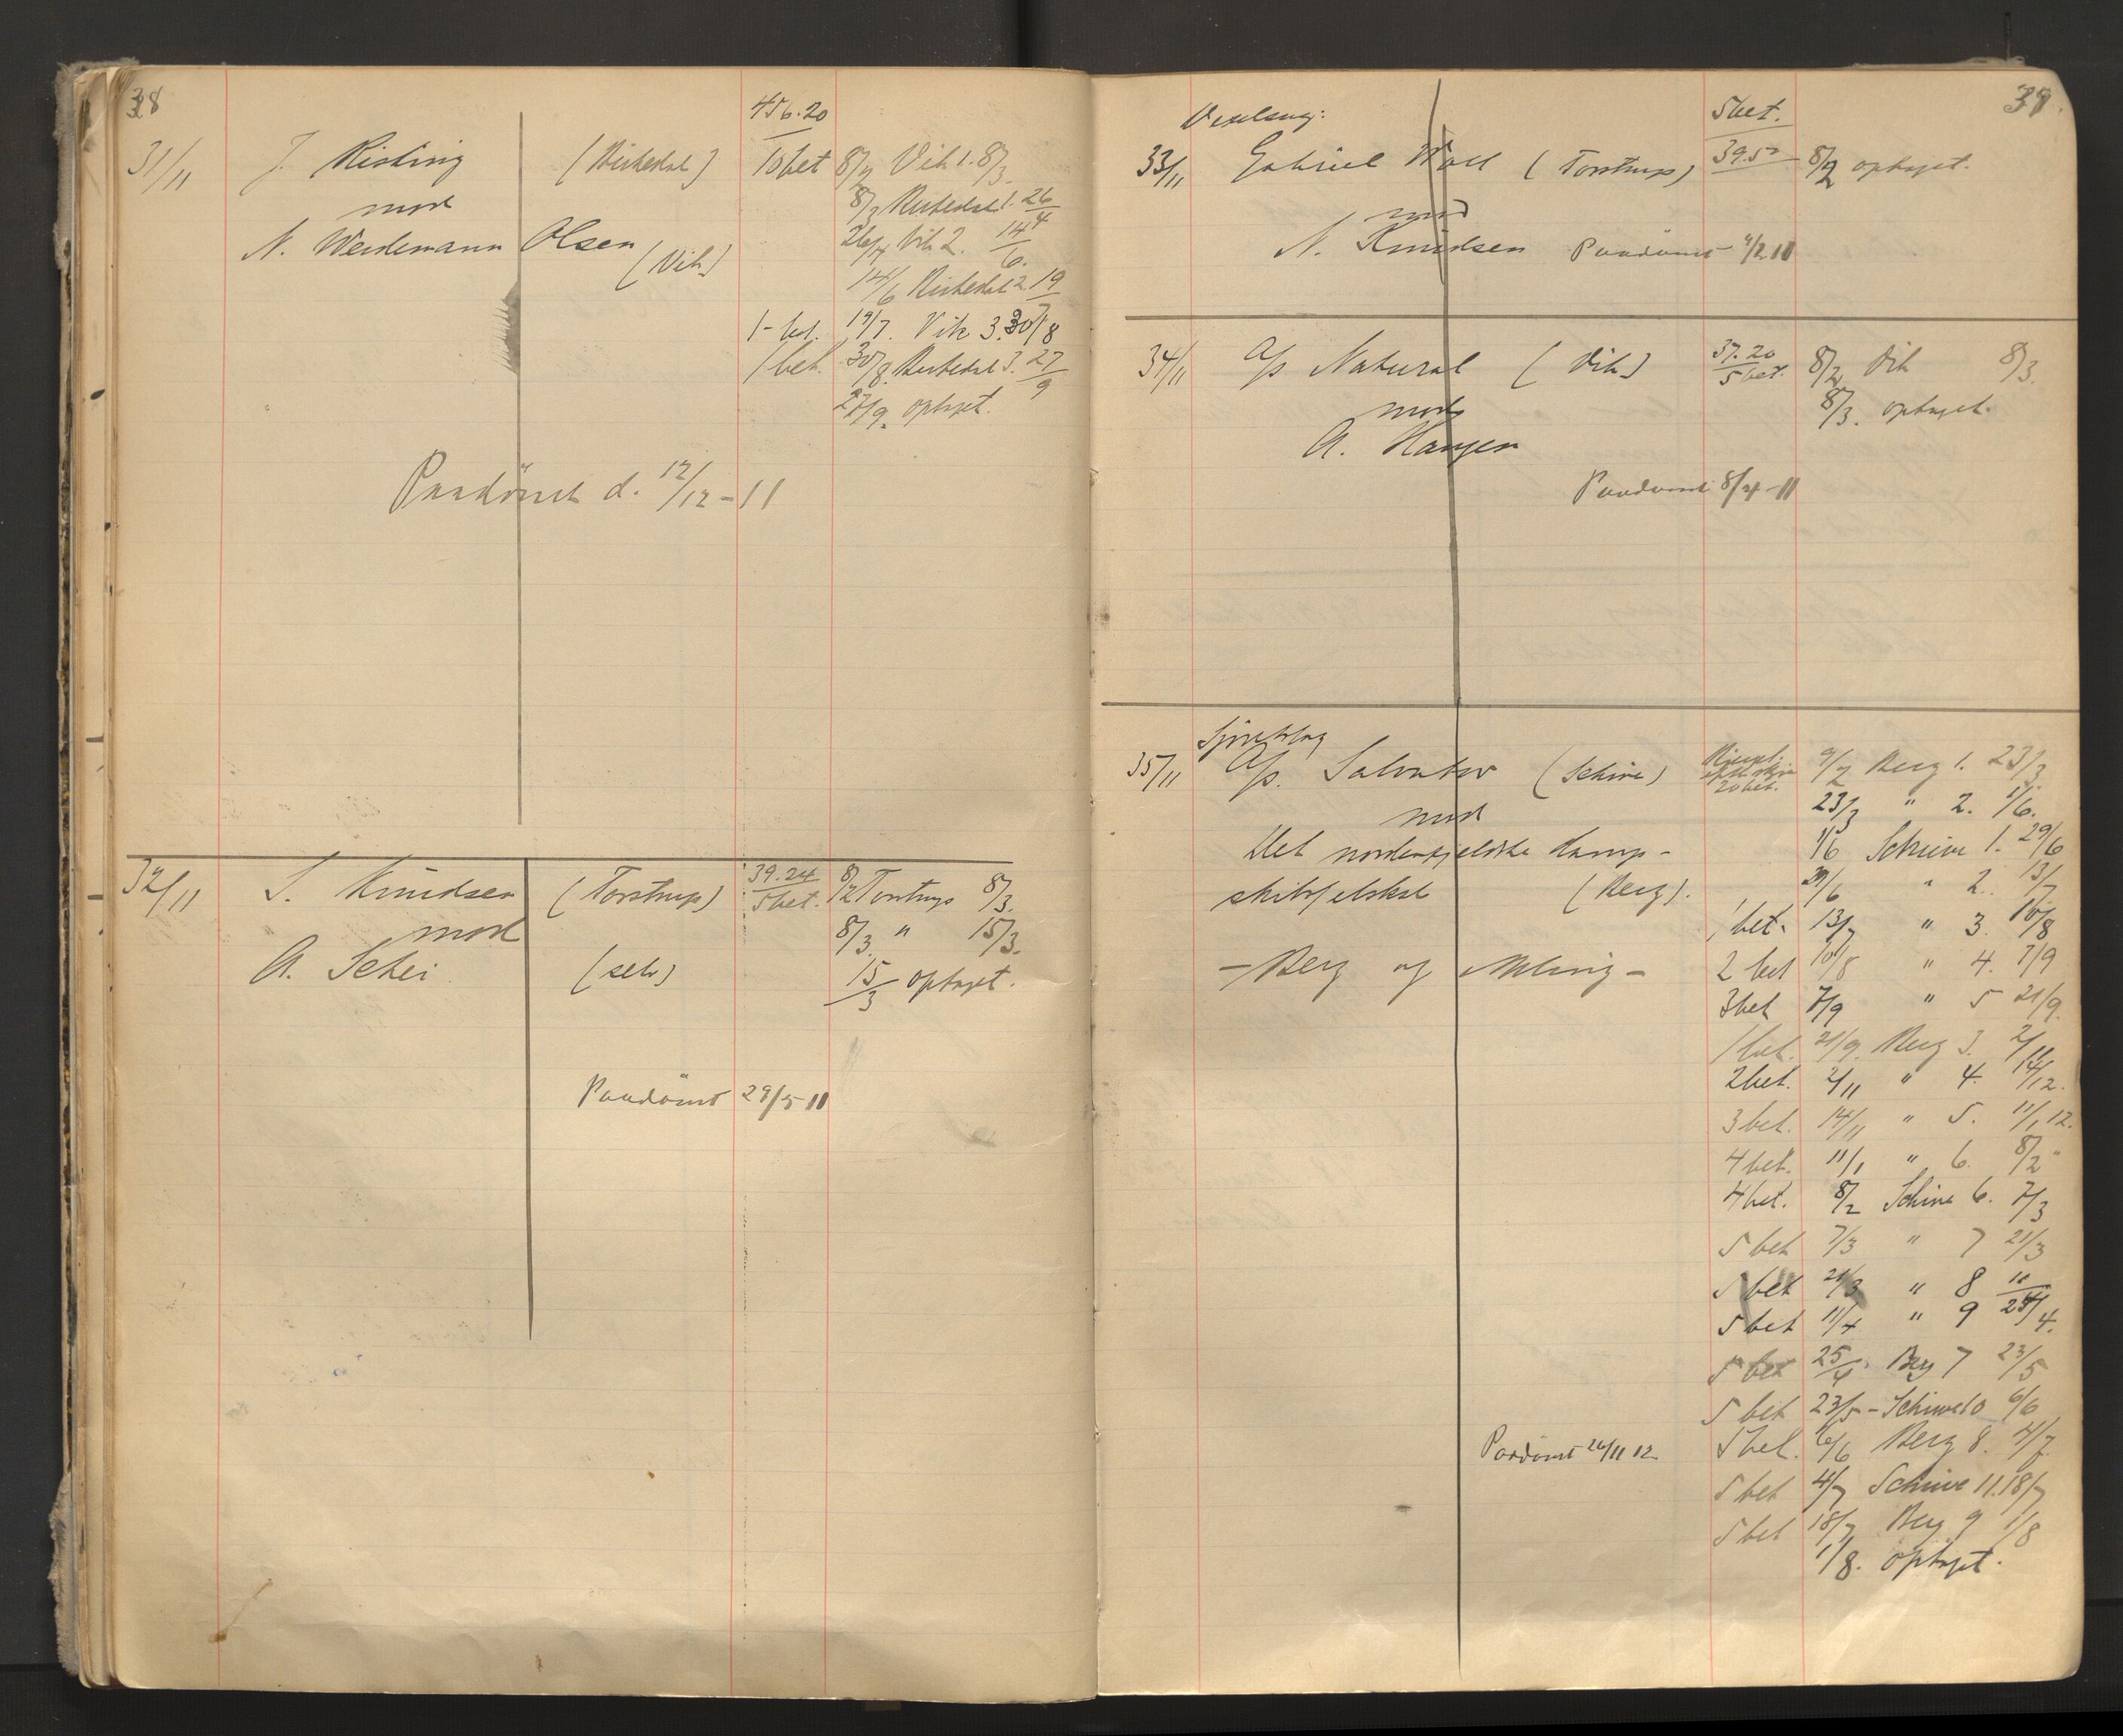 38
456.20
31/11 J. Risting (Birkedal) 10 bet 8/2 Vik 1. 8/3
mod 8/3 Birkedal 1. 26/4
N. Weidemann Olsen (Vik) 26/4 Vik 2. 14/6.
14/6 Birkedal 2 19/7
1 - bet. 19/7. Vik 3. 30/8
1 bet. 30/8. Birkedal 3. 27/9
27/9. optaget.
Paadömt d. 12/12 - 11
32/11 S. Knudsen (Torstrup) 39.24 8/2 Torstrup 8/3.
5 bet.
mod 8/3. " 15/3.
A. Schei (selv) 15/3 optaget.
Paadömt 29/5 11
39.
Vexelsag: 5 bet.
33/11 Gabriel Wall (Torstrup) 39.50 8/2 optaget.
mod
N. Knudsen Paadömt 9/2 11
34/11 A/s Natural (Vik) 37.20 8/2 Vik 8/3.
5 bet.
mod 8/3. optaget.
A. Hansen
Paadömt 8/4 - 11
35/11 A/s. Salvator (Schive) 20 bet. 9/2 Berg 1. 23/3
mod 23/3 " 2. 1/6.
Det nordenfjeldske damp- 1/6 Schive 1. 29/6
skibsselskab (Berg). 29/6 " 2. 13/7
1 bet. 13/7 " 3. 10/8
- Berg og Mehng - 2 bet 10/8 " 4. 7/9
3 bet 7/9 " 5 21/9.
1 bet. 21/9. Berg 3. 2/11
2 bet. 2/11 " 4. 14/12.
3 bet. 14/11 " 5. 11/1 12.
4 bet. 11/1 " 6. 8/2 "
4 bet. 8/2 Schive 6. 7/3
5 bet 7/3 " 7 21/3
5 bet 21/3 " 8 11/4
5 bet 11/4 " 9 25/4.
5 bet 25/4. Berg 7 23/5
5 bet 23/5 - Schive 10 6/6
Paadömt 26/11 12 5 bet. 6/6 Berg 8. 4/7.
5 bet 4/7 Schive 11. 18/7
5 bet 18/7 Berg 9 1/8
1/8. optaget.